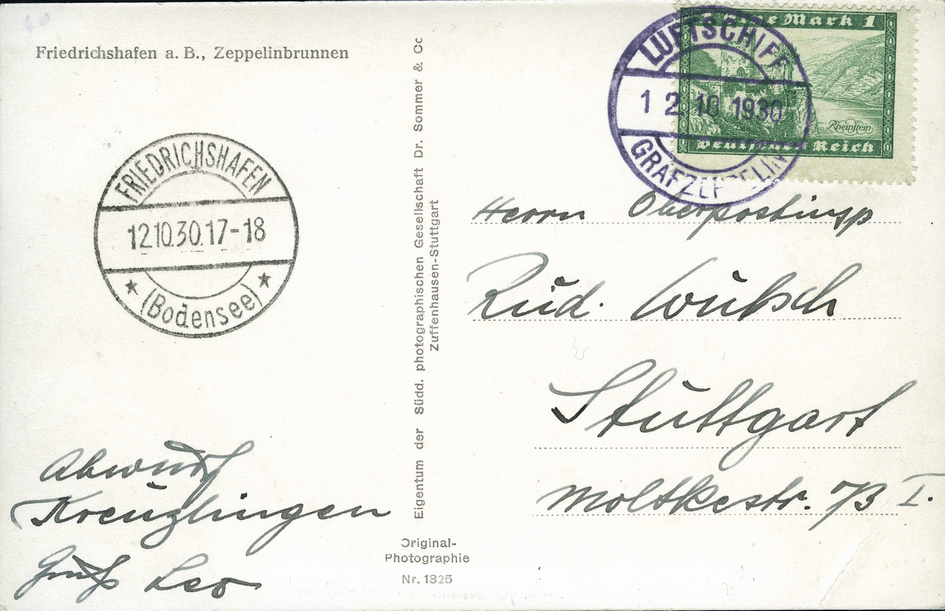 Friedrichshafen a. B., Zeppelinbrunnen
FRIEDRICHSHAFEN
12.10.30.17-18
(Bodensee)
Abwurf
Kreuzlingen
Gruß Leo
Eigentum der Südd. photographischen Gesellschaft Dr. Sommer & Co
Zuffenhausen-Stuttgart
Original-
Photographie
Nr. 1325
Mark 1
Rheinstein
Deutsches Reich
LUFTSCHIFF
12.10.1930
GRAF ZEPPELIN
Herrn Oberpostinsp
Rud. Wutsch
Stuttgart
Moltkestr. 73 I.